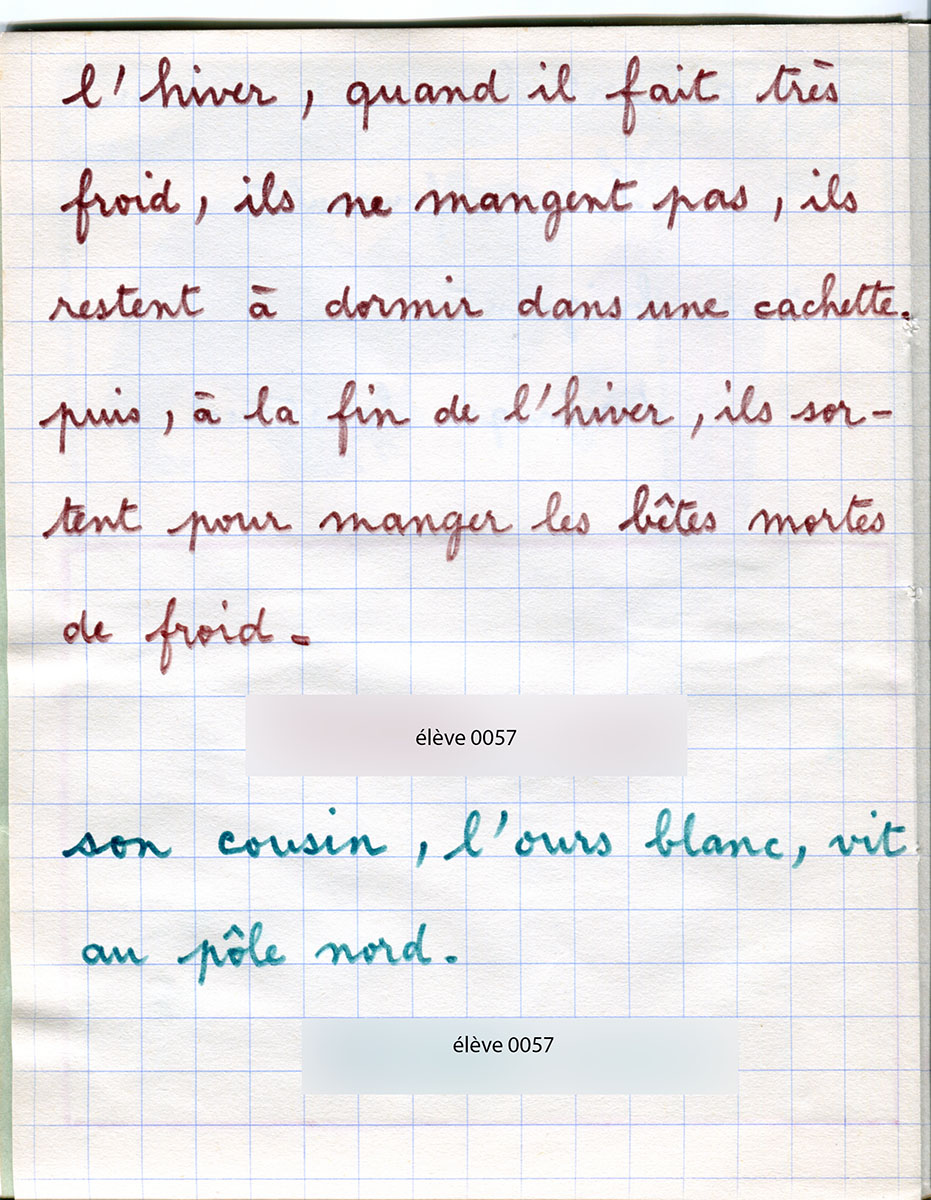 l'hiver, quand il fait très
froid, ils ne mangent pas, ils
restent à dormir dans une cachette.
puis, à la fin de l'hiver, ils sor-
tent pour manger les bêtes mortes
de froid.
élève 0057
son cousin, l'ours blanc, vit
au pôle nord.
élève 0057